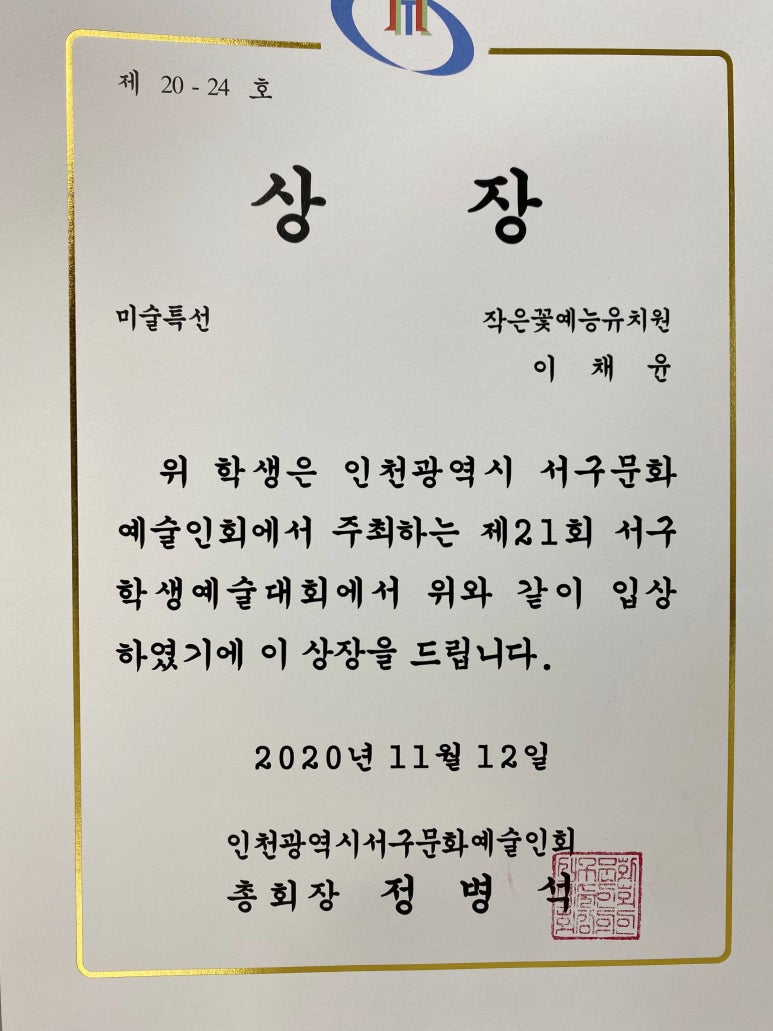 제 20 - 24 호
상 장
미술특선 작은꽃예능유치원
이 채 윤
위 학생은 인천광역시 서구문화
예술인회에서 주최하는 제21회 서구
학생예술대회에서 위와 같이 입상
하였기에 이 상장을 드립니다.
2020년 11월 12일
인천광역시서구문화예술인회
총회장 정 병 석